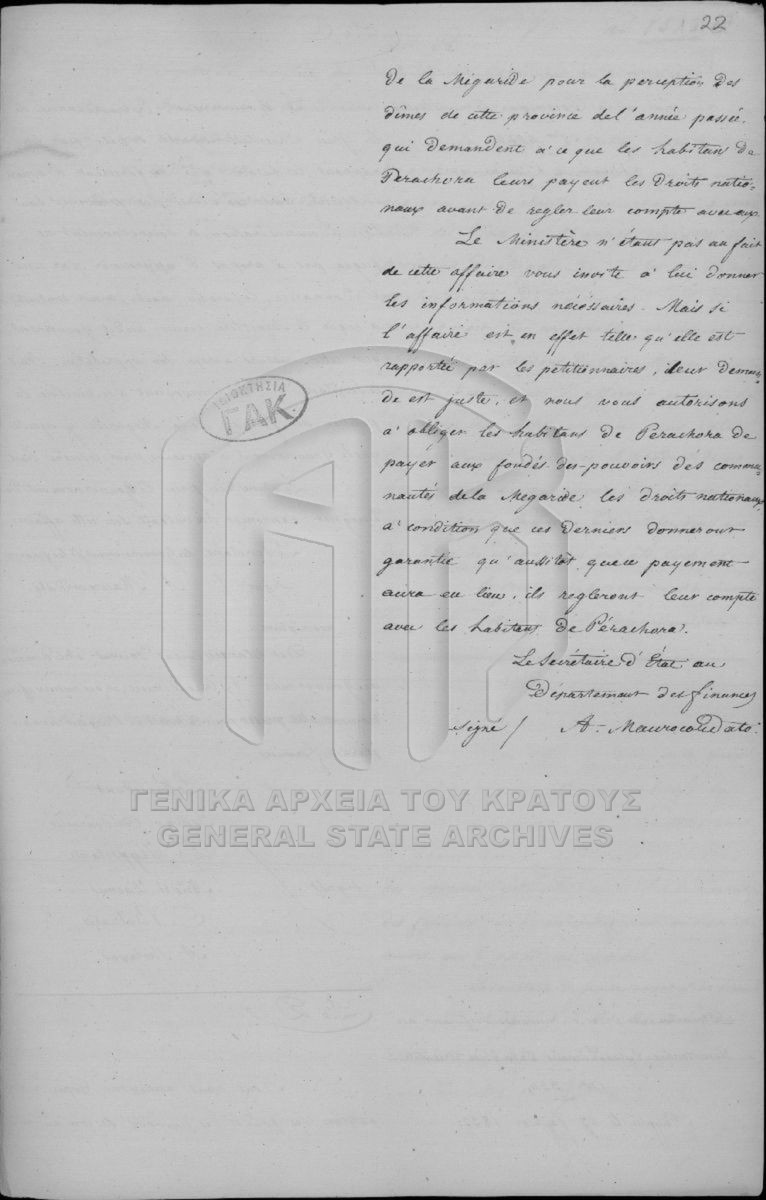 22
de la Mégaride pour la perception des
dîmes de cette province de l'année passée.
qui demandent à ce que les habitans de
Perachora leurs payent les droits natio-
naux avant de regler leur compte avec eux.
Le Ministère n'étant pas au fait
de cette affaire vous invite à lui donner
les informations nécéssaires. Mais si
l'affaire est en effet telle qu'elle est
rapportée par les pétitionnaires, leur deman-
de est juste, et nous vous autorisons
à obliger les habitans de Pérachora de
payer aux fondés-des-pouvoirs des commu-
nautés de la Mégaride les droits nationaux,
à condition que ces derniers donneront
garantie qu'aussitôt que ce payement
aura eu lieu, ils regleront leur compte
avec les habitans de Pérachora.
Le Secrétaire d'État au
Département des finances
signé / A. Maurocordato.
ΙΔΙΟΚΤΗΣΙΑ
ΓΑΚ
ΓΕΝΙΚΑ ΑΡΧΕΙΑ ΤΟΥ ΚΡΑΤΟΥΣ
GENERAL STATE ARCHIVES